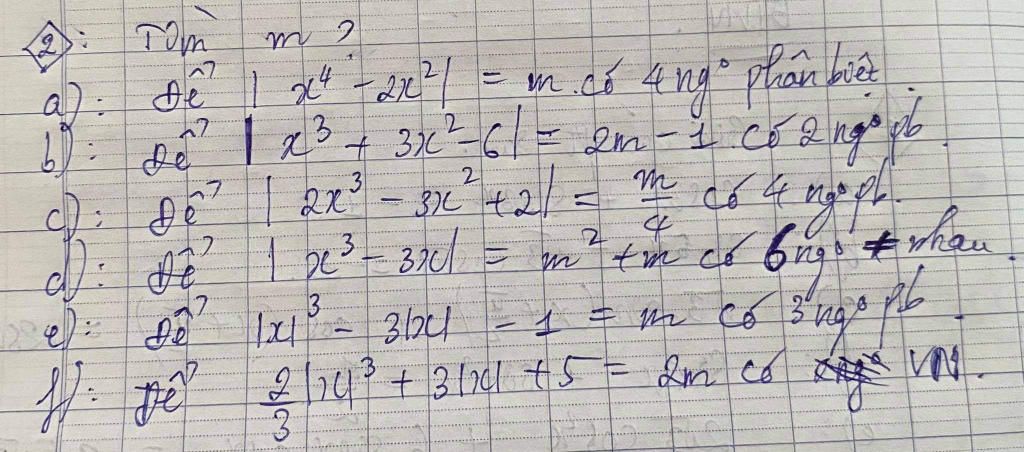 2: Tìm m?
a): Để | x⁴ - 2x² | = m có 4 ngº phân biệt.
b): Để | x³ + 3x² - 6 | = 2m - 1 có 2 ngº pb.
c): Để | 2x³ - 3x² + 2 | = m/4 có 4 ngº pb.
d): Để | x³ - 3x | = m² + m có 6 ngº ≠ nhau.
e): Để |x|³ - 3|x| - 1 = m có 3 ngº pb
f): Để 2/3 |x|³ + 3|x| + 5 = 2m có VN.